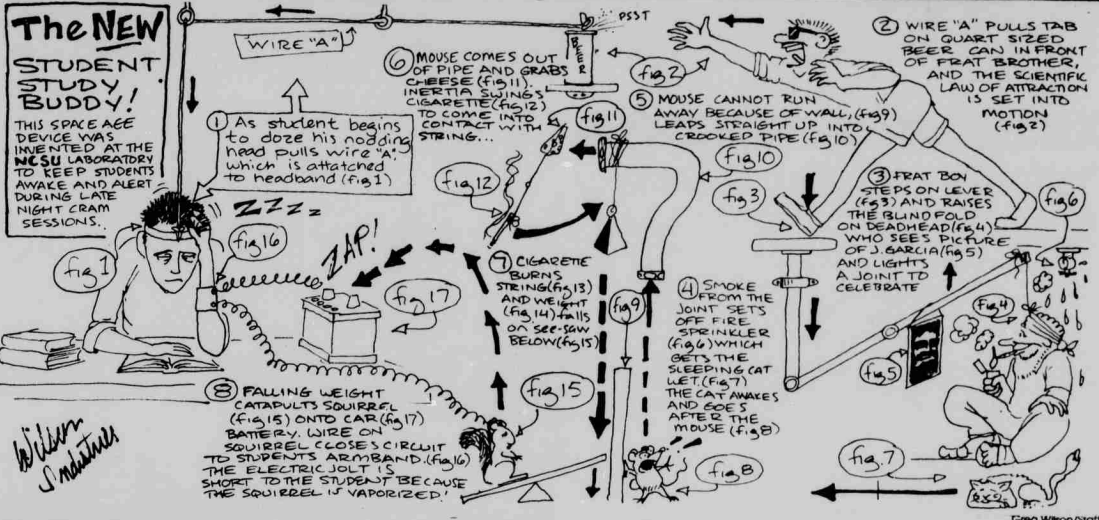 The NEW
STUDENT
STUDY
BUDDY!
THIS SPACE AGE
DEVICE WAS
INVENTED AT THE
NCSU LABORATORY
TO KEEP STUDENTS
AWAKE AND ALERT
DURING LATE
NIGHT CRAM
SESSIONS.
WIRE "A"
① As student begins
to doze his nodding
head pulls wire "A"
which is attatched
to headband (fig 1)
ZZZz
fig 1
fig 16
② WIRE "A" PULLS TAB
ON QUART SIZED
BEER CAN IN FRONT
OF FRAT BROTHER,
AND THE SCIENTIFIC
LAW OF ATTRACTION
IS SET INTO
MOTION
(fig 2)
PSST
BEER
fig 2
③ FRAT BOY
STEPS ON LEVER
(fig 3) AND RAISES
THE BLINDFOLD
ON DEADHEAD (fig 4)
WHO SEES PICTURE
OF J. GARCIA (fig 5)
AND LIGHTS
A JOINT TO
CELEBRATE
fig 3
fig 6
fig 4
fig 5
④ SMOKE
FROM THE
JOINT SETS
OFF FIRE
SPRINKLER
(fig 6) WHICH
GETS THE
SLEEPING CAT
WET. (fig 7)
THE CAT AWAKES
AND GOES
AFTER THE
MOUSE (fig 8)
fig 7
fig 8
⑤ MOUSE CANNOT RUN
AWAY BECAUSE OF WALL, (fig 9)
LEADS STRAIGHT UP INTO
CROOKED PIPE (fig 10)
fig 9
fig 10
⑥ MOUSE COMES OUT
OF PIPE AND GRABS
CHEESE (fig 11).
INERTIA SWINGS
CIGARETTE (fig 12)
TO COME INTO
CONTACT WITH
STRING...
fig 11
fig 12
⑦ CIGARETTE
BURNS
STRING (fig 13)
AND WEIGHT
(fig 14) falls
on see-saw
BELOW (fig 15)
fig 15
ZAP!
fig 17
⑧ FALLING WEIGHT
CATAPULTS SQUIRREL
(fig 15) ONTO CAR (fig 17)
BATTERY. WIRE ON
SQUIRREL CLOSES CIRCUIT
TO STUDENTS ARMBAND. (fig 16)
THE ELECTRIC JOLT IS
SHORT TO THE STUDENT BECAUSE
THE SQUIRREL IS VAPORIZED!
Wilson
Industries
Greg Wilson